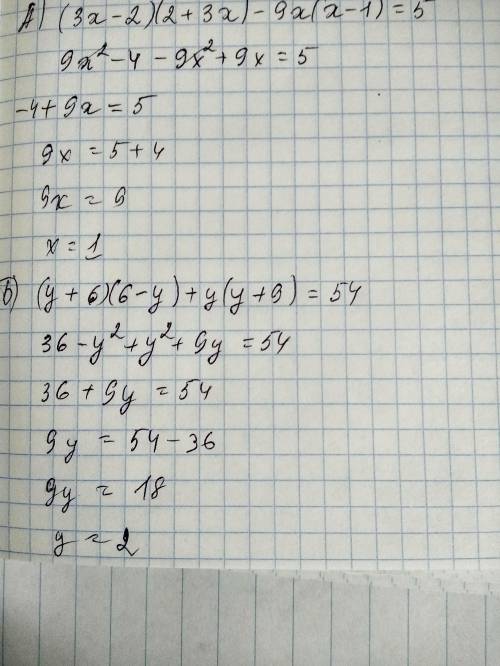 А) (3x-2)(2+3x)-9x(x-1)=5
9x²-4-9x²+9x=5
-4+9x=5
9x=5+4
9x=9
x=1
Б) (y+6)(6-y)+y(y+9)=54
36-y²+y²+9y=54
36+9y=54
9y=54-36
9y=18
y=2